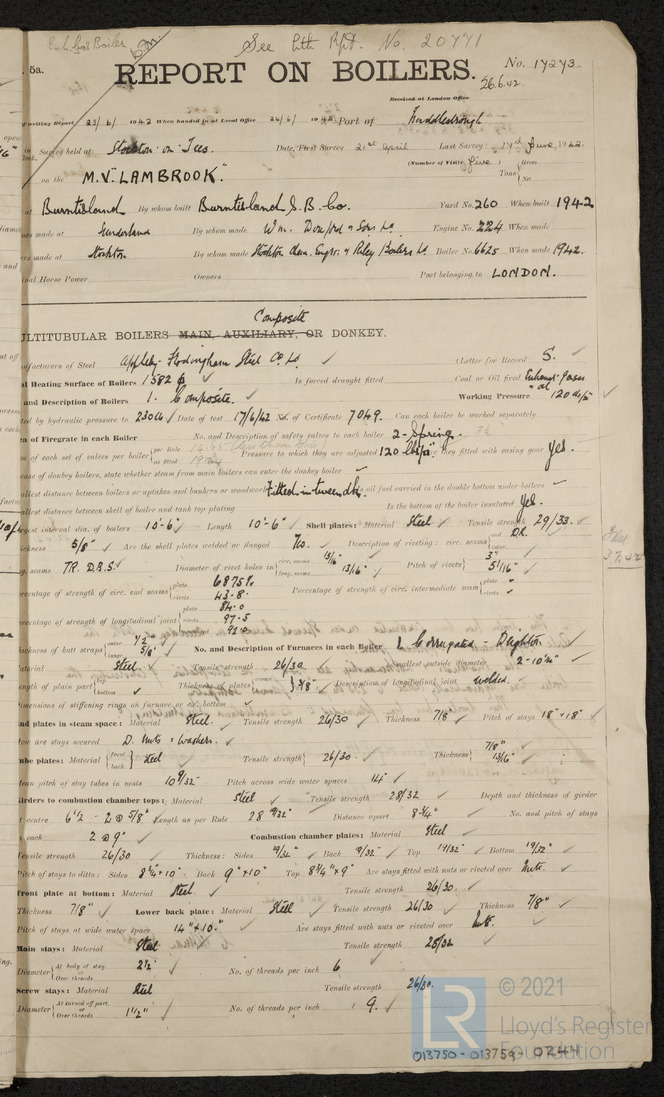 See 6th Rpt. No. 20771
5a. REPORT ON BOILERS. No. 17273.
26.6.42
Received at London Office
of writing Report 23/6/1942 When handed in at Local Office 26/6/1942 Port of Middlesbrough
Survey held at Stockton-on-Tees. Date, First Survey 21st April Last Survey 17th June, 1942
(Number of Visits five) Gross Tons Net
on the M.V. "LAMBROOK".
at Burntisland By whom built Burntisland S.B. Co. Yard No. 260 When built 1942
made at Sunderland By whom made Wm. Doxford & Sons Ld. Engine No. 224 When made
made at Stockton By whom made Stockton Chem. Engrs. & Riley Boilers Ld Boiler No. 6625 When made 1942.
Horse Power Owners Port belonging to LONDON.
Composite
MULTITUBULAR BOILERS MAIN, AUXILIARY, OR DONKEY.
Manufacturers of Steel Appleby-Frodingham Steel Co Ld (Letter for Record S.
Heating Surface of Boilers 1582 Is forced draught fitted Coal or Oil fired Exhaust gases or oil
and Description of Boilers 1. Composite. Working Pressure 120
tested by hydraulic pressure to 230 Date of test 17/6/42 No. of Certificate 7049. Can each boiler be worked separately
Area of Firegrate in each Boiler No. and Description of safety valves to each boiler 2 - Spring.
Area of each set of valves per boiler per Rule as fitted Pressure to which they are adjusted 120 lbs Are they fitted with easing gear Yes.
In case of donkey boilers, state whether steam from main boilers can enter the donkey boiler
Smallest distance between boilers or uptakes and bunkers or woodwork Fitted in tween dk. oil fuel carried in the double bottom under boilers
Smallest distance between shell of boiler and tank top plating Is the bottom of the boiler insulated Yes.
Largest internal dia. of boilers 10'-6" Length 10'-6" Shell plates: Material Steel Tensile strength 29/33.
Thickness 5/8" Are the shell plates welded or flanged No. Description of riveting: circ. seams end DR. inter.
long. seams TR. D.B.S. Diameter of rivet holes in circ. seams 15/16" long. seams 13/16" Pitch of rivets 3" 5 1/16"
Percentage of strength of circ. end seams plate 68.75% rivets 43.8 Percentage of strength of circ. intermediate seam plate rivets
Percentage of strength of longitudinal joint plate 84.0 rivets 97.5
Thickness of butt straps outer 1/2" inner 5/8" No. and Description of Furnaces in each Boiler 1 Corrugated - Deighton
Material Steel. Tensile strength 26/30 Smallest outside diameter 2'-10 1/2"
Length of plain part top bottom Thickness of plates crown bottom Description of longitudinal joint welded.
Dimensions of stiffening rings on furnace or c.c. bottom
End plates in steam space: Material Steel. Tensile strength 26/30 Thickness 7/8" Pitch of stays 18" x 18"
How are stays secured D. Nuts & Washers.
Tube plates: Material front back Steel Tensile strength 26/30 Thickness 7/8" 13/16"
Mean pitch of stay tubes in nests 10 9/32" Pitch across wide water spaces 14"
Girders to combustion chamber tops: Material Steel Tensile strength 28/32 Depth and thickness of girder
at centre 6 1/2 - 2 @ 5/8" Length as per Rule 28 9/32" Distance apart 8 3/4" No. and pitch of stays
in each 2 @ 9" Combustion chamber plates: Material Steel
Tensile strength 26/30 Thickness: Sides 19/32" Back 19/32" Top 19/32" Bottom 19/32"
Pitch of stays to ditto: Sides 8 3/4" x 10" Back 9" x 10" Top 8 3/4" x 9" Are stays fitted with nuts or riveted over Nuts.
Front plate at bottom: Material Steel. Tensile strength 26/30
Thickness 7/8" Lower back plate: Material Steel Tensile strength 26/30 Thickness 7/8"
Pitch of stays at wide water space 14" x 10" Are stays fitted with nuts or riveted over Nuts.
Main stays: Material Steel Tensile strength 28/32
Diameter At body of stay, or Over threads 2 1/2" No. of threads per inch 6
Screw stays: Material Steel Tensile strength 26/30.
Diameter At turned off part, or Over threads 1 1/2" No. of threads per inch 9.
LR © 2021
Lloyd's Register
Foundation
013750-013759-0244